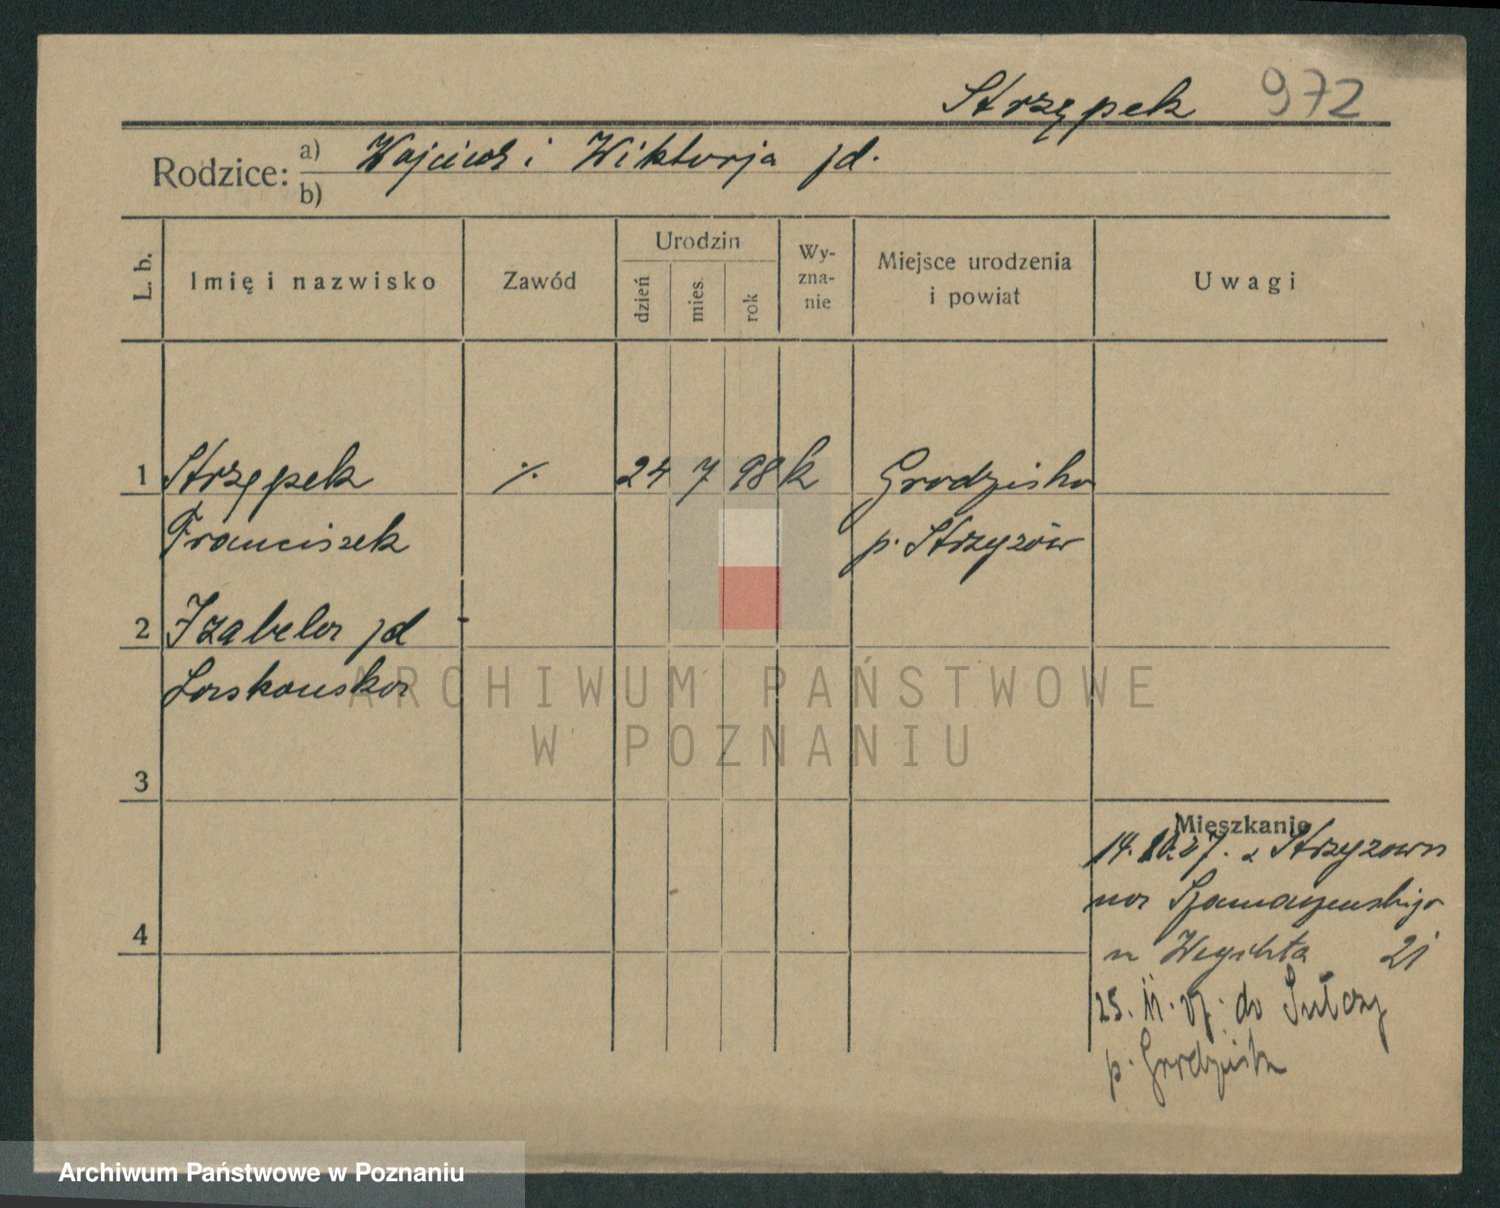 Strzępek 972
Rodzice: a) Wojciech i Wiktorja jd.
b)
L. b.
Imię i nazwisko
Zawód
Urodzin
dzień
mies.
rok
Wy-
zna-
nie
Miejsce urodzenia
i powiat
Uwagi
1 Strzępek ./. 24 7 98 k Grodzisko
Franciszek p. Strzyżów
2 Izabela jd
Laskowska
3
4
Mieszkanie
14. 10. 27. z Strzyżowa
na
u 21
25. 11. 27. do
p. Grodzisk
ARCHIWUM PAŃSTWOWE
W POZNANIU
Archiwum Państwowe w Poznaniu